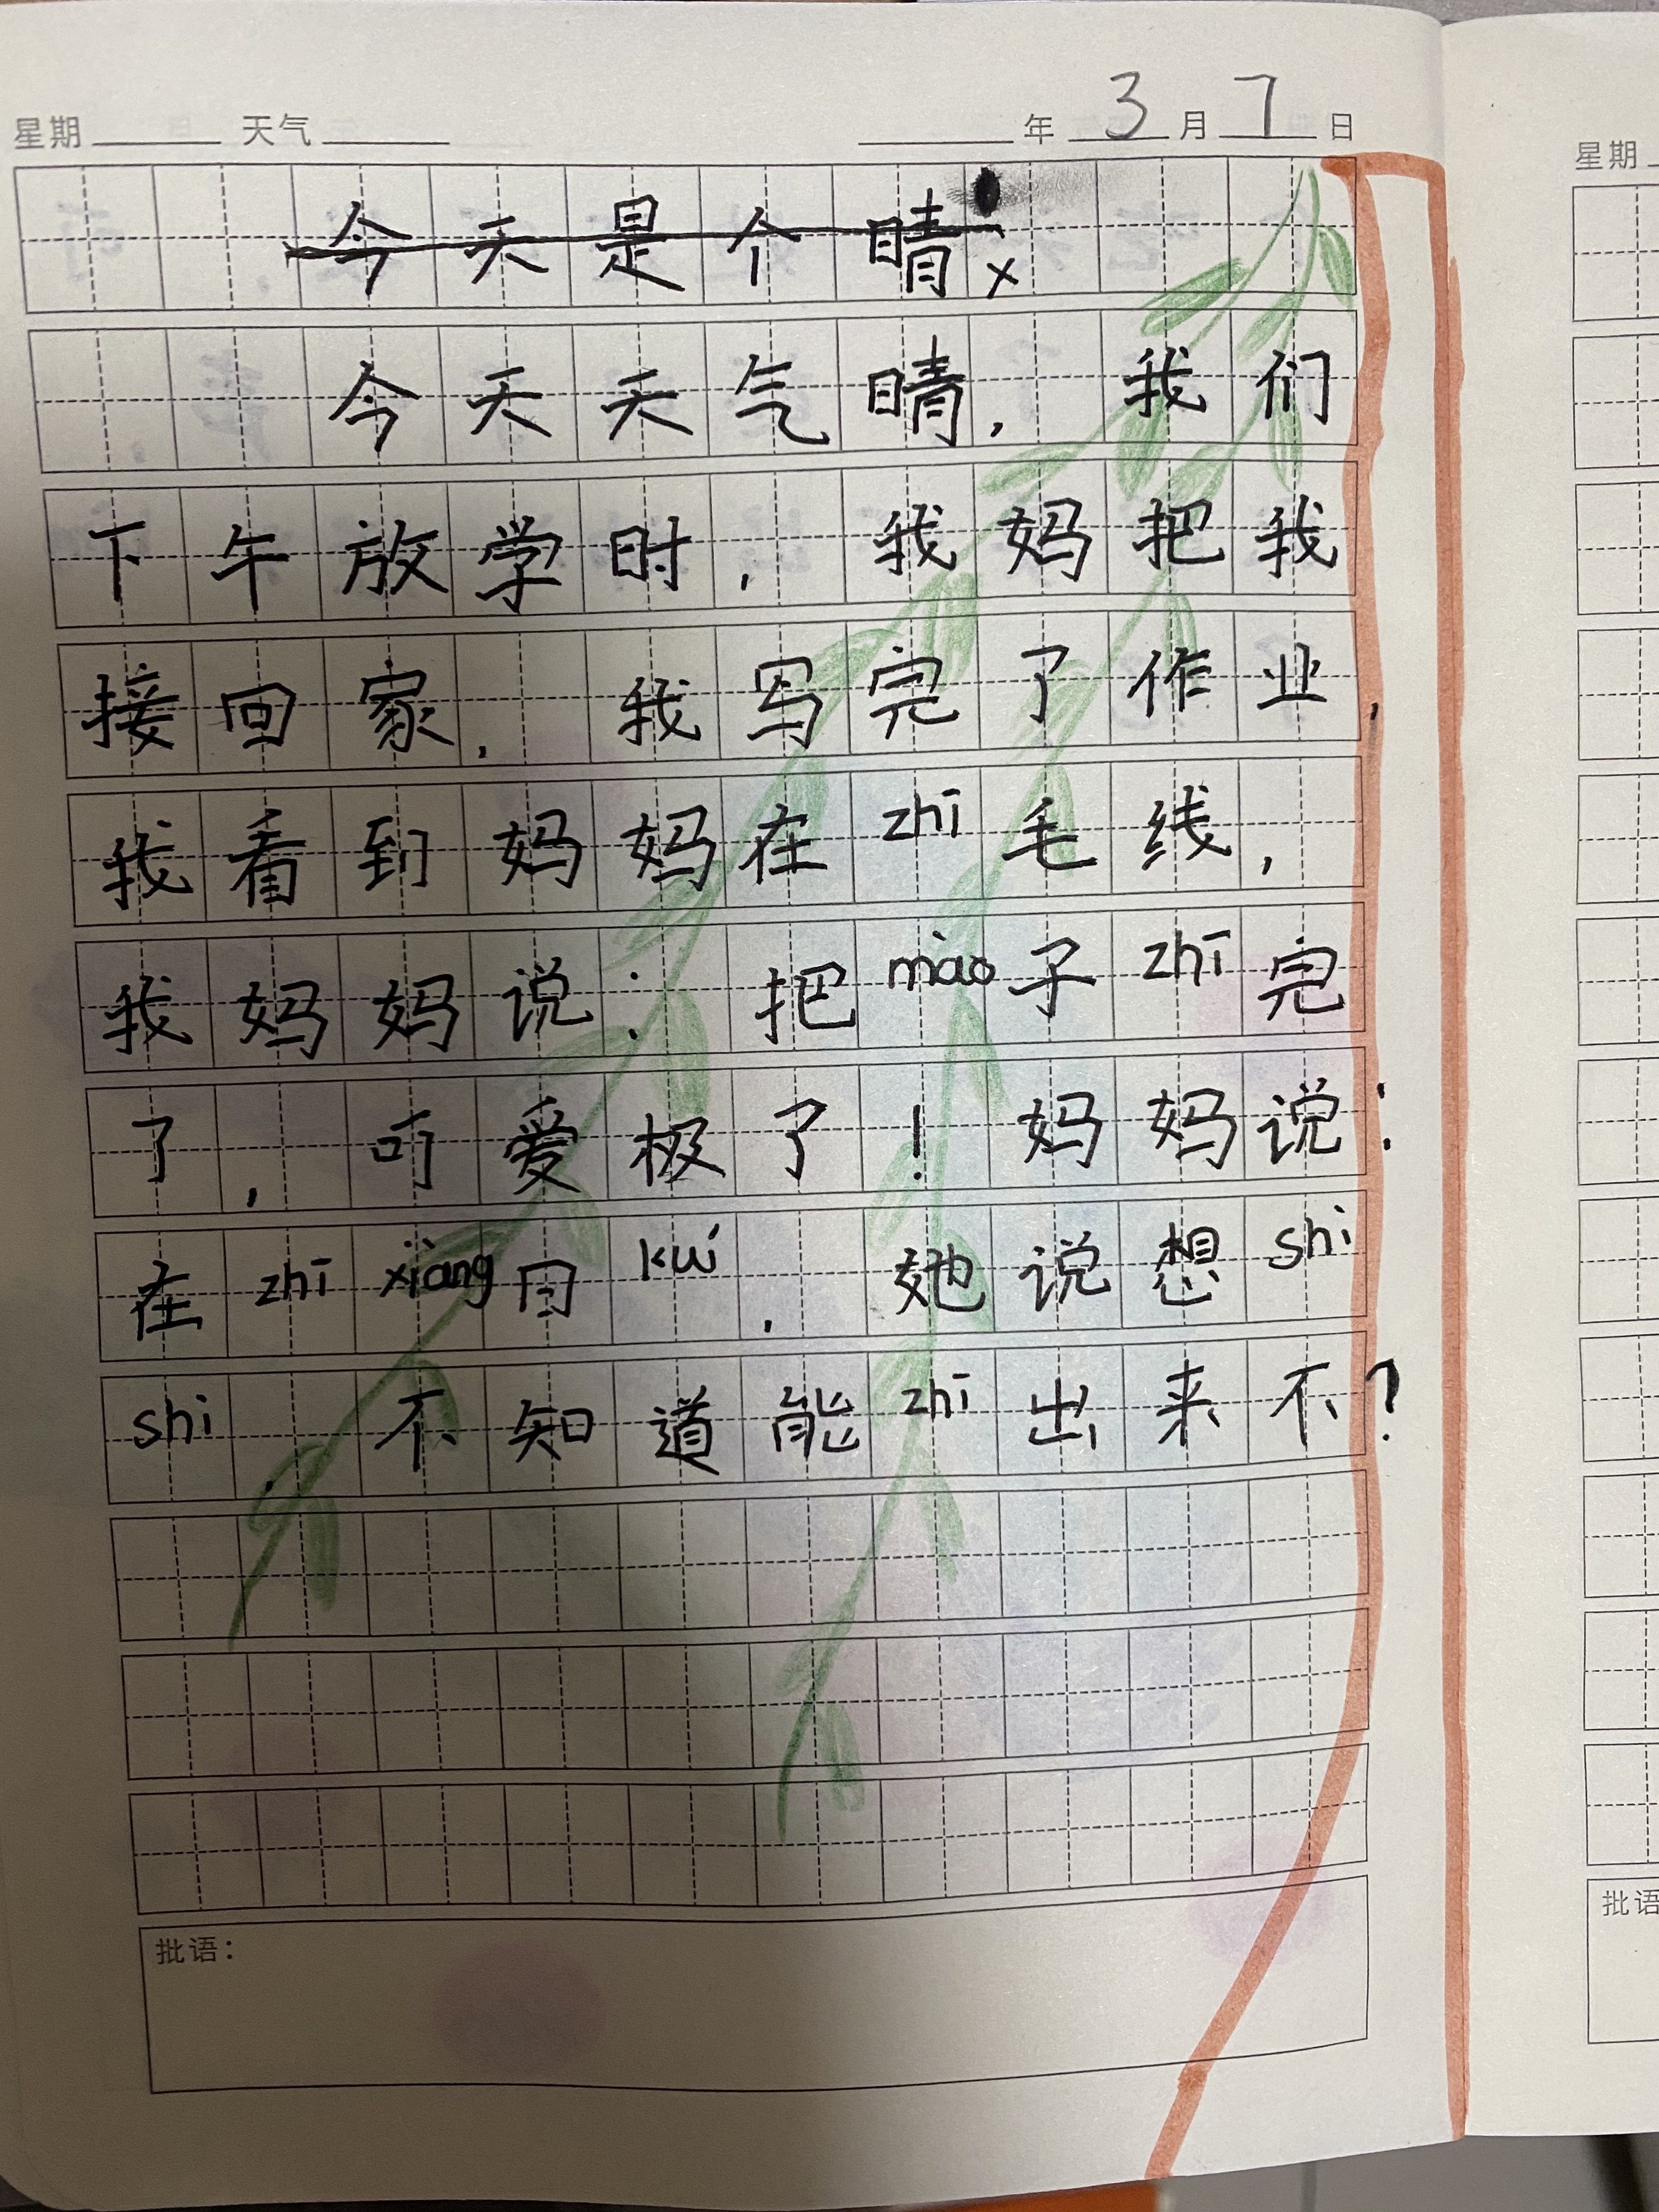 星期 天气 年 3 月 7 日
今天是个晴
今天天气晴，我们
下午放学时，我妈把我
接回家，我写完了作业，
我看到妈妈在zhī毛线，
我妈妈说：把mào子zhī完
了，可爱极了！妈妈说：
在zhī xiàng日kuí，她说想shi
shi，不知道能zhī出来不？
批语：
星期
批语